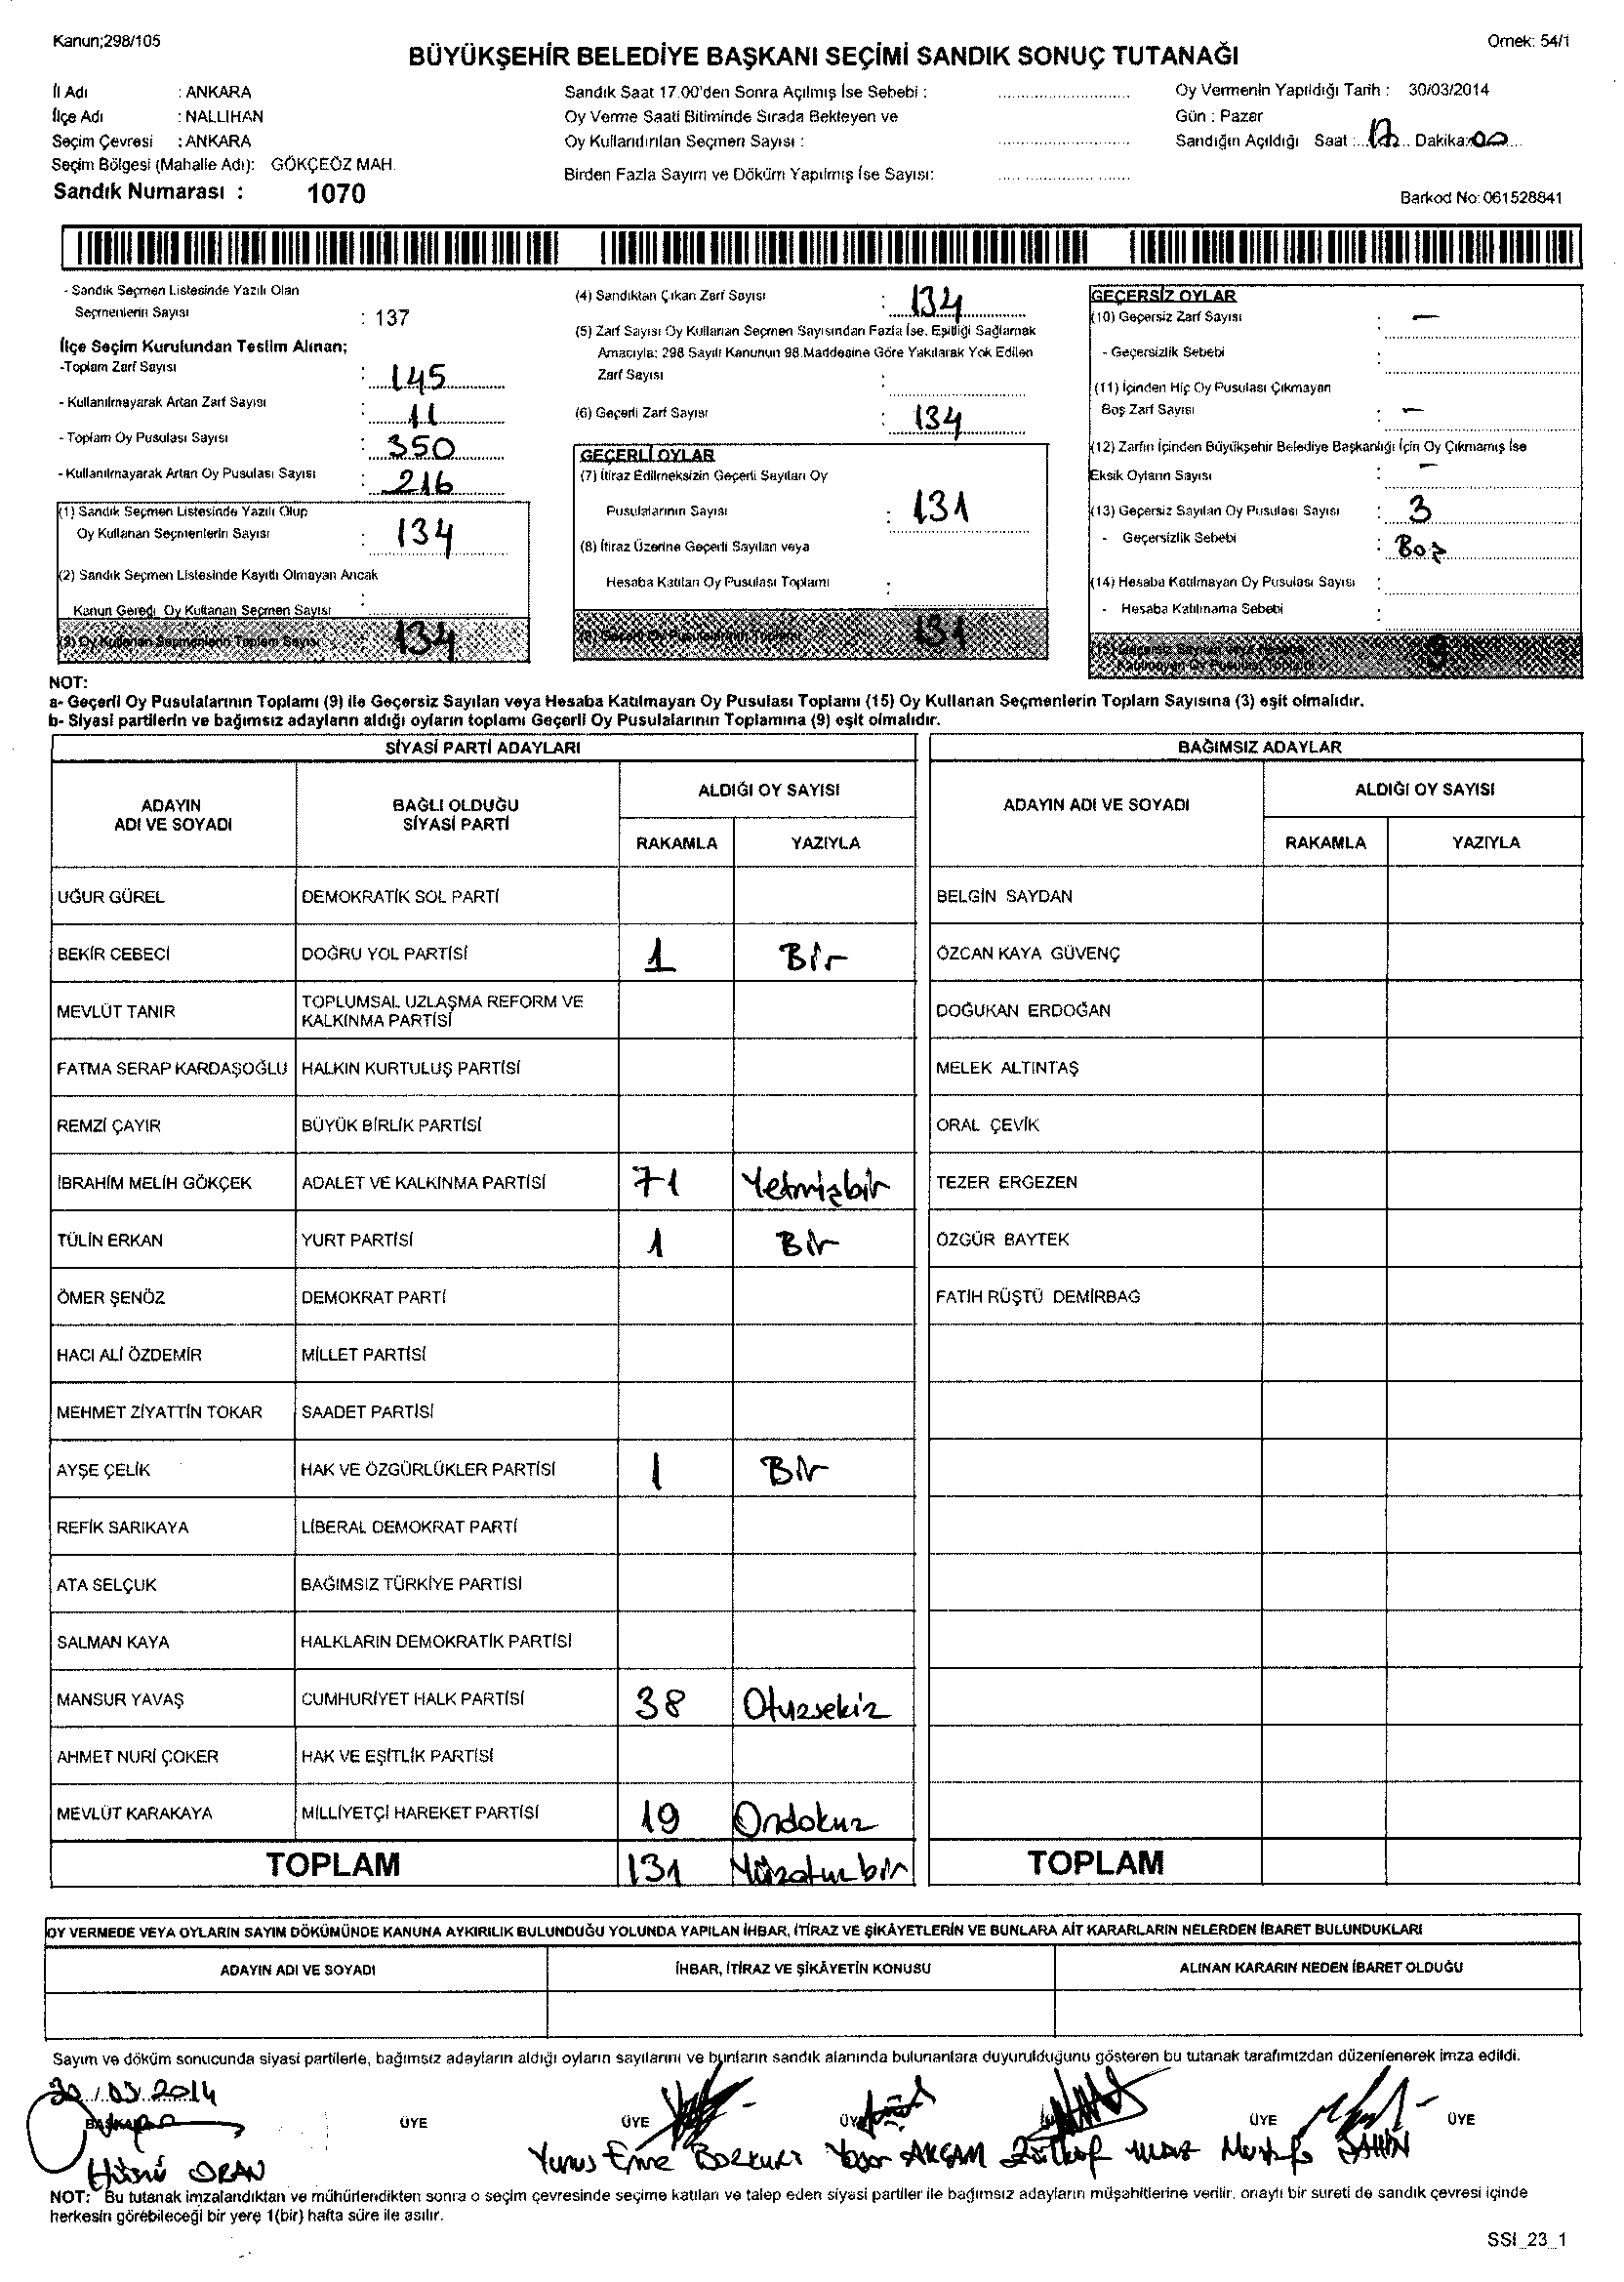 Kanun;298/105
Örnek: 54/1
BÜYÜKŞEHİR BELEDİYE BAŞKANI SEÇİMİ SANDIK SONUÇ TUTANAĞI
İl Adı : ANKARA
İlçe Adı : NALLIHAN
Seçim Çevresi : ANKARA
Seçim Bölgesi (Mahalle Adı): GÖKÇEÖZ MAH.
Sandık Numarası : 1070
Sandık Saat 17.00'den Sonra Açılmış İse Sebebi :
Oy Verme Saati Bitiminde Sırada Bekleyen ve
Oy Kullandırılan Seçmen Sayısı :
Birden Fazla Sayım ve Döküm Yapılmış İse Sayısı:
Oy Vermenin Yapıldığı Tarih : 30/03/2014
Gün : Pazar
Sandığın Açıldığı Saat : 17 Dakika: 00
Barkod No: 061528841
- Sandık Seçmen Listesinde Yazılı Olan
Seçmenlerin Sayısı : 137
İlçe Seçim Kurulundan Teslim Alınan;
-Toplam Zarf Sayısı : 145
- Kullanılmayarak Artan Zarf Sayısı : 11
- Toplam Oy Pusulası Sayısı : 350
- Kullanılmayarak Artan Oy Pusulası Sayısı : 216
(1) Sandık Seçmen Listesinde Yazılı Olup
Oy Kullanan Seçmenlerin Sayısı : 134
(2) Sandık Seçmen Listesinde Kayıtlı Olmayan Ancak
Kanun Gereği Oy Kullanan Seçmen Sayısı :
(3) Oy Kullanan Seçmenlerin Toplam Sayısı : 134
(4) Sandıktan Çıkan Zarf Sayısı : 134
(5) Zarf Sayısı Oy Kullanan Seçmen Sayısından Fazla İse, Eşitliği Sağlamak
Amacıyla; 298 Sayılı Kanunun 98.Maddesine Göre Yakılarak Yok Edilen
Zarf Sayısı :
(6) Geçerli Zarf Sayısı : 134
GEÇERLİ OYLAR
(7) İtiraz Edilmeksizin Geçerli Sayılan Oy
Pusulalarının Sayısı : 131
(8) İtiraz Üzerine Geçerli Sayılan veya
Hesaba Katılan Oy Pusulası Toplamı :
(9) Geçerli Oy Pusulalarının Toplamı 131
GEÇERSİZ OYLAR
(10) Geçersiz Zarf Sayısı : —
- Geçersizlik Sebebi :
(11) İçinden Hiç Oy Pusulası Çıkmayan
Boş Zarf Sayısı : —
(12) Zarfın İçinden Büyükşehir Belediye Başkanlığı İçin Oy Çıkmamış İse
Eksik Oyların Sayısı : —
(13) Geçersiz Sayılan Oy Pusulası Sayısı : 3
- Geçersizlik Sebebi : Boş
(14) Hesaba Katılmayan Oy Pusulası Sayısı :
- Hesaba Katılmama Sebebi :
(15) Geçersiz Sayılan veya Hesaba
Katılmayan Oy Pusulası Toplamı 3
NOT:
a- Geçerli Oy Pusulalarının Toplamı (9) ile Geçersiz Sayılan veya Hesaba Katılmayan Oy Pusulası Toplamı (15) Oy Kullanan Seçmenlerin Toplam Sayısına (3) eşit olmalıdır.
b- Siyasi partilerin ve bağımsız adayların aldığı oyların toplamı Geçerli Oy Pusulalarının Toplamına (9) eşit olmalıdır.
SİYASİ PARTİ ADAYLARI
ADAYIN
ADI VE SOYADI
BAĞLI OLDUĞU
SİYASİ PARTİ
ALDIĞI OY SAYISI
RAKAMLA YAZIYLA
UĞUR GÜREL DEMOKRATİK SOL PARTİ
BEKİR CEBECİ DOĞRU YOL PARTİSİ 1 Bir
MEVLÜT TANIR TOPLUMSAL UZLAŞMA REFORM VE
KALKINMA PARTİSİ
FATMA SERAP KARDAŞOĞLU HALKIN KURTULUŞ PARTİSİ
REMZİ ÇAYIR BÜYÜK BİRLİK PARTİSİ
İBRAHİM MELİH GÖKÇEK ADALET VE KALKINMA PARTİSİ 71 Yetmişbir
TÜLİN ERKAN YURT PARTİSİ 1 Bir
ÖMER ŞENÖZ DEMOKRAT PARTİ
HACI ALİ ÖZDEMİR MİLLET PARTİSİ
MEHMET ZİYATTİN TOKAR SAADET PARTİSİ
AYŞE ÇELİK HAK VE ÖZGÜRLÜKLER PARTİSİ 1 Bir
REFİK SARIKAYA LİBERAL DEMOKRAT PARTİ
ATA SELÇUK BAĞIMSIZ TÜRKİYE PARTİSİ
SALMAN KAYA HALKLARIN DEMOKRATİK PARTİSİ
MANSUR YAVAŞ CUMHURİYET HALK PARTİSİ 38 Otuzsekiz
AHMET NURİ ÇOKER HAK VE EŞİTLİK PARTİSİ
MEVLÜT KARAKAYA MİLLİYETÇİ HAREKET PARTİSİ 19 Ondokuz
TOPLAM 131 Yüzotuzbir
BAĞIMSIZ ADAYLAR
ADAYIN ADI VE SOYADI
ALDIĞI OY SAYISI
RAKAMLA YAZIYLA
BELGİN SAYDAN
ÖZCAN KAYA GÜVENÇ
DOĞUKAN ERDOĞAN
MELEK ALTINTAŞ
ORAL ÇEVİK
TEZER ERGEZEN
ÖZGÜR BAYTEK
FATİH RÜŞTÜ DEMİRBAĞ
TOPLAM
OY VERMEDE VEYA OYLARIN SAYIM DÖKÜMÜNDE KANUNA AYKIRILIK BULUNDUĞU YOLUNDA YAPILAN İHBAR, İTİRAZ VE ŞİKÂYETLERİN VE BUNLARA AİT KARARLARIN NELERDEN İBARET BULUNDUKLARI
ADAYIN ADI VE SOYADI İHBAR, İTİRAZ VE ŞİKÂYETİN KONUSU ALINAN KARARIN NEDEN İBARET OLDUĞU
Sayım ve döküm sonucunda siyasi partilerle, bağımsız adayların aldığı oyların sayılarını ve bunların sandık alanında bulunanlara duyurulduğunu gösteren bu tutanak tarafımızdan düzenlenerek imza edildi.
30/03.2014
BAŞKAN ÜYE ÜYE ÜYE ÜYE ÜYE
Hüsnü ORAN Yunus Emre BOZKURT Yaşar AKÇAM Mustafa ŞAHİN
NOT: Bu tutanak imzalandıktan ve mühürlendikten sonra o seçim çevresinde seçime katılan ve talep eden siyasi partiler ile bağımsız adayların müşahitlerine verilir, onaylı bir sureti de sandık çevresi içinde
herkesin görebileceği bir yere 1(bir) hafta süre ile asılır.
SSI_23_1